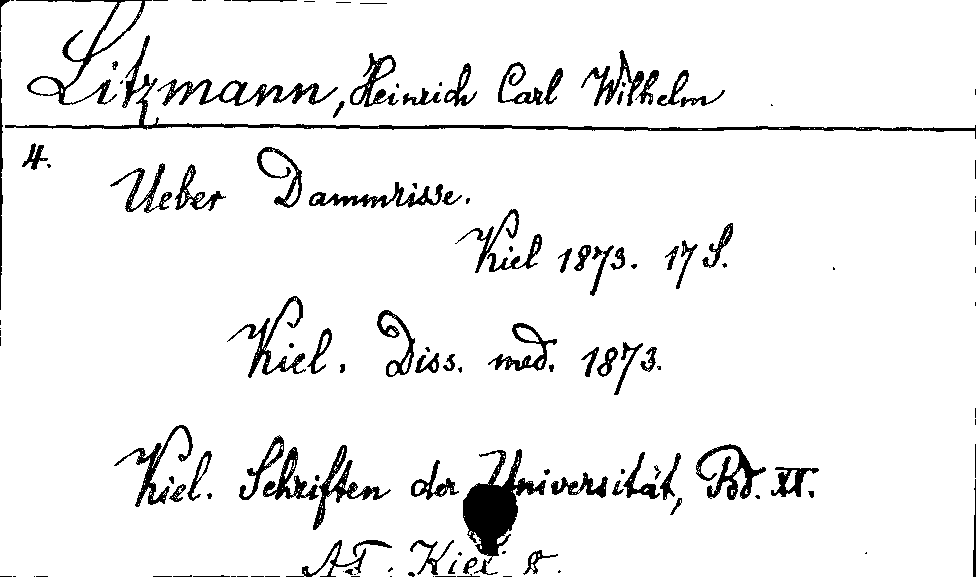 Litzmann, Heinrich Carl Wilhelm
4.
Ueber Dammrisse.
Kiel 1873. 17 S.
Kiel. Diss. med. 1873.
Kiel. Schriften der Universität, Bd. XX.
AT. Kiel 8.